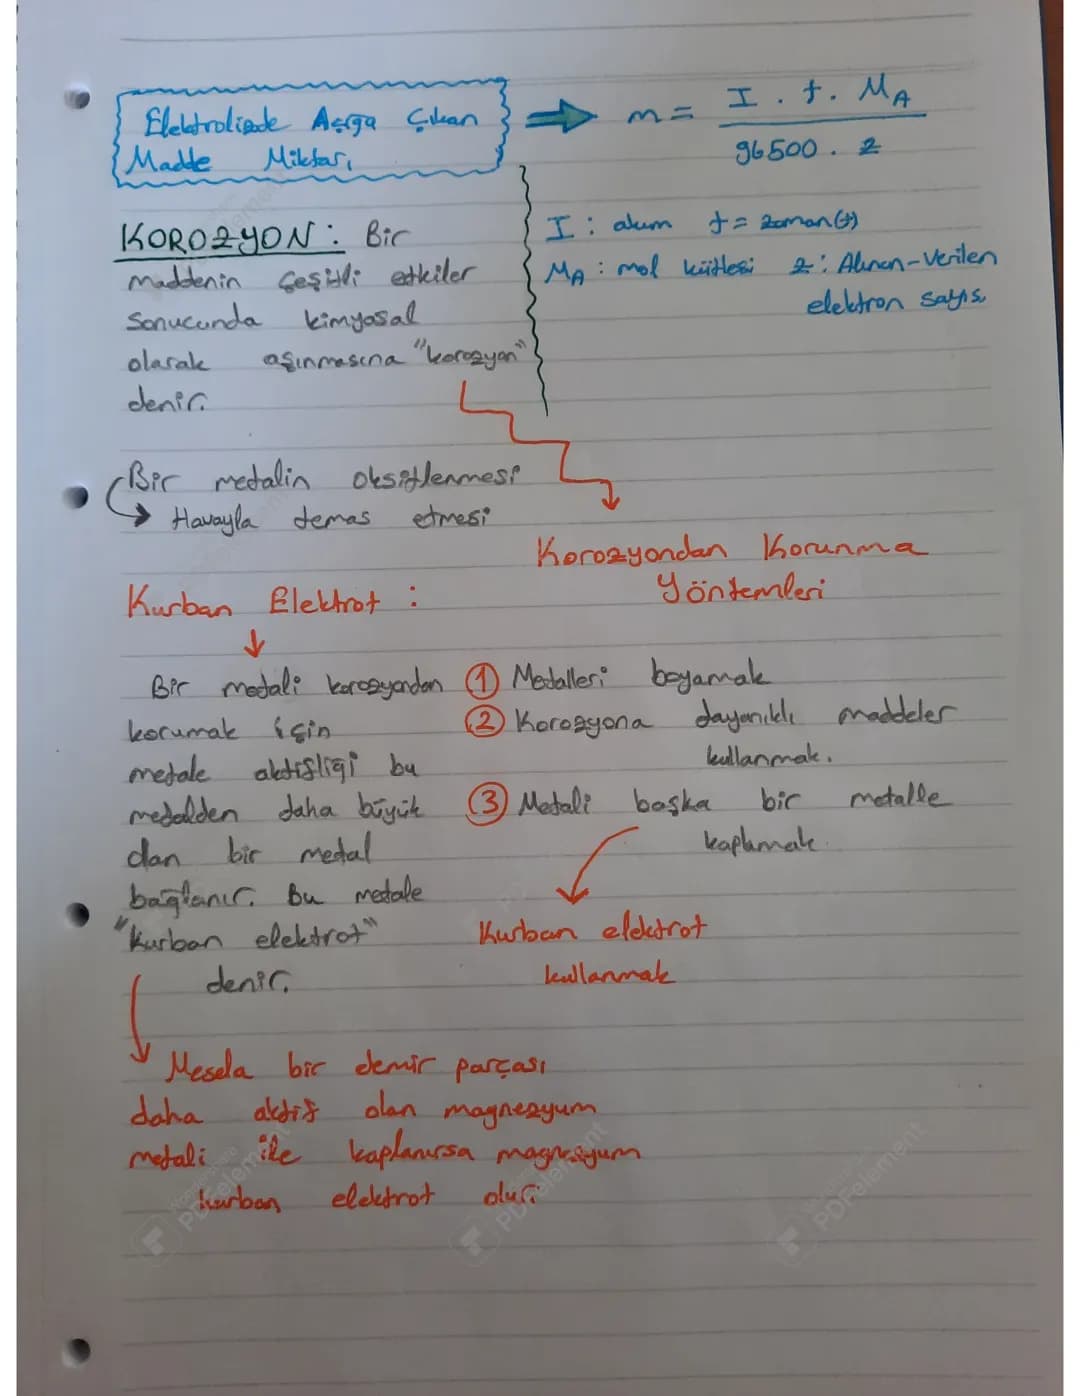 Elektrolizde Açığa Çıkan
Madde Miktarı
m = I . t . MA
96500 . z
I : akım t = zaman(t)
MA : mol kütlesi z : Alınan-Verilen
elektron sayısı
KOROZYON : Bir
maddenin çeşitli etkiler
sonucunda kimyasal
olarak aşınmasına "korozyon"
denir.
Bir metalin oksitlenmesi
Havayla temas etmesi
Korozyondan Korunma
Yöntemleri
Kurban Elektrot :
Bir metali korozyondan
korumak için
metale aktifliği bu
metalden daha büyük
olan bir metal
bağlanır. Bu metale
"Kurban elektrot"
denir.
1 Metalleri boyamak
2 Korozyona dayanıklı maddeler
kullanmak.
3 Metali başka bir metalle
kaplamak.
Kurban elektrot
kullanmak
Mesela bir demir parçası
daha aktif olan magnezyum
metali ile kaplanırsa magnezyum
kurban elektrot olur.
Wondershare
PDFelement
Wondershare
PDFelement
Wondershare
PDFelement